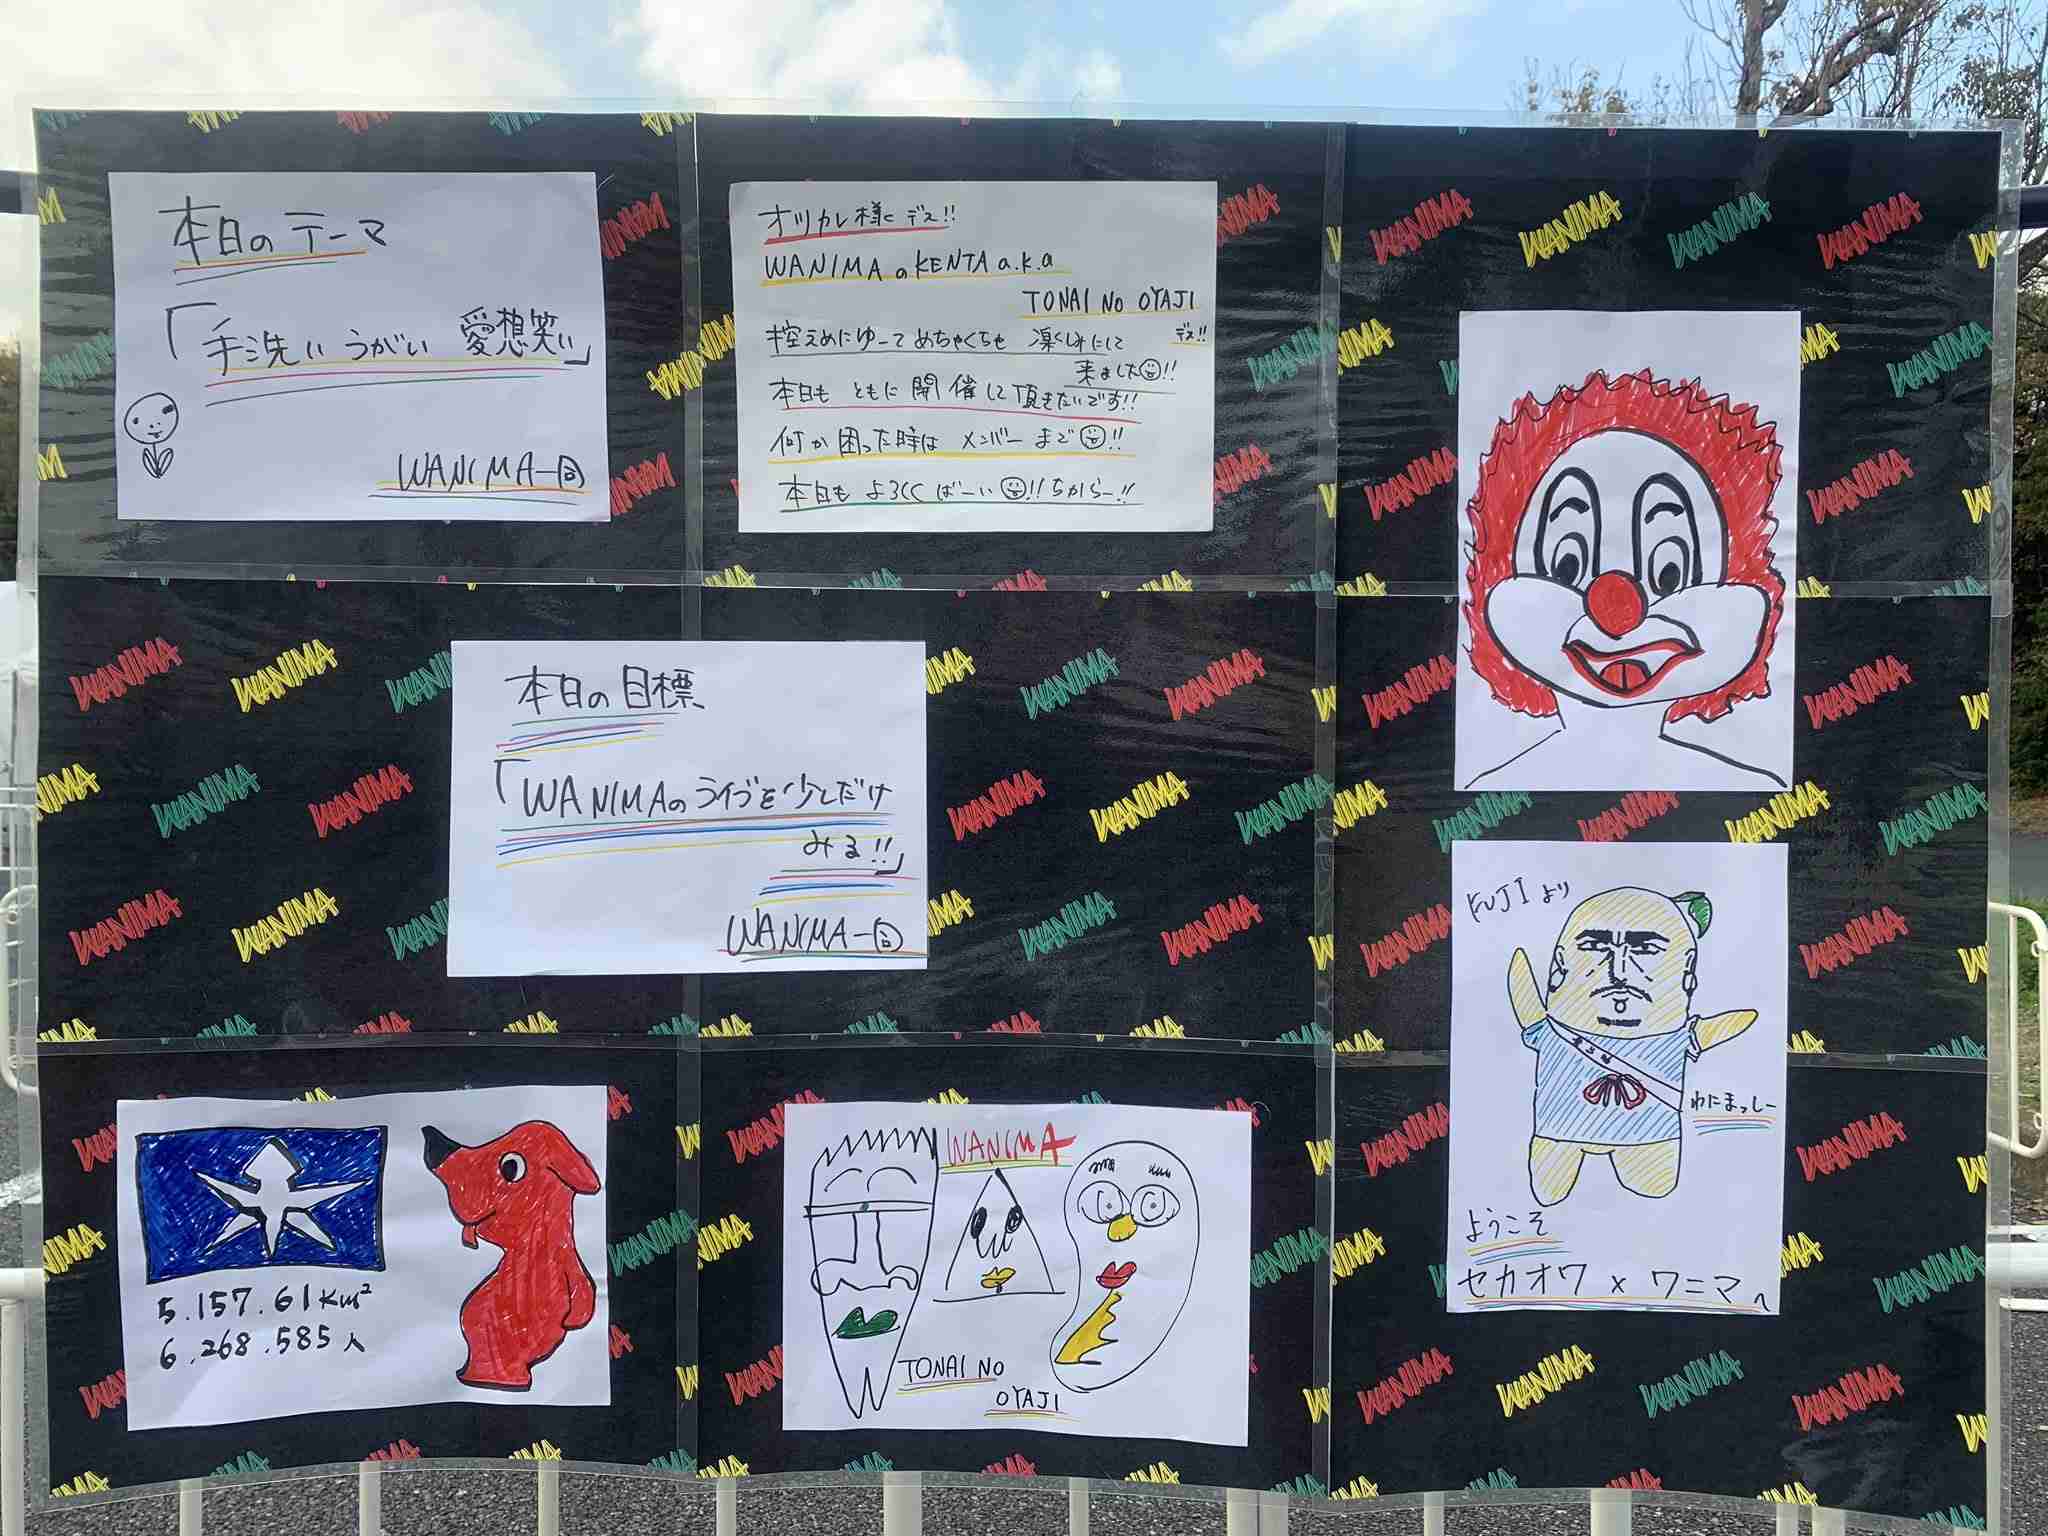 本日のテーマ
「手洗い うがい 愛想笑い」
WANIMA一同
オツカレ様です!!
WANIMAのKENTA a.k.a
TONAI NO OYAJI
デス!!
控えめにゆーて めちゃくちゃ 楽しみにして
来ました!!
本日も ともに 開催して頂きたいです!!
何か困った時は メンバーまで!!
本日も よろしく ばーい!!ちからー!!
本日の目標
「WANIMAのライブを少しだけ
みる!!」
WANIMA一同
5.157.61km²
6.268.585人
WANIMA
TONAI NO
OYAJI
FUJIより
わにまっしー
ようこそ
セカオワ×ワニマへ
WANIMA